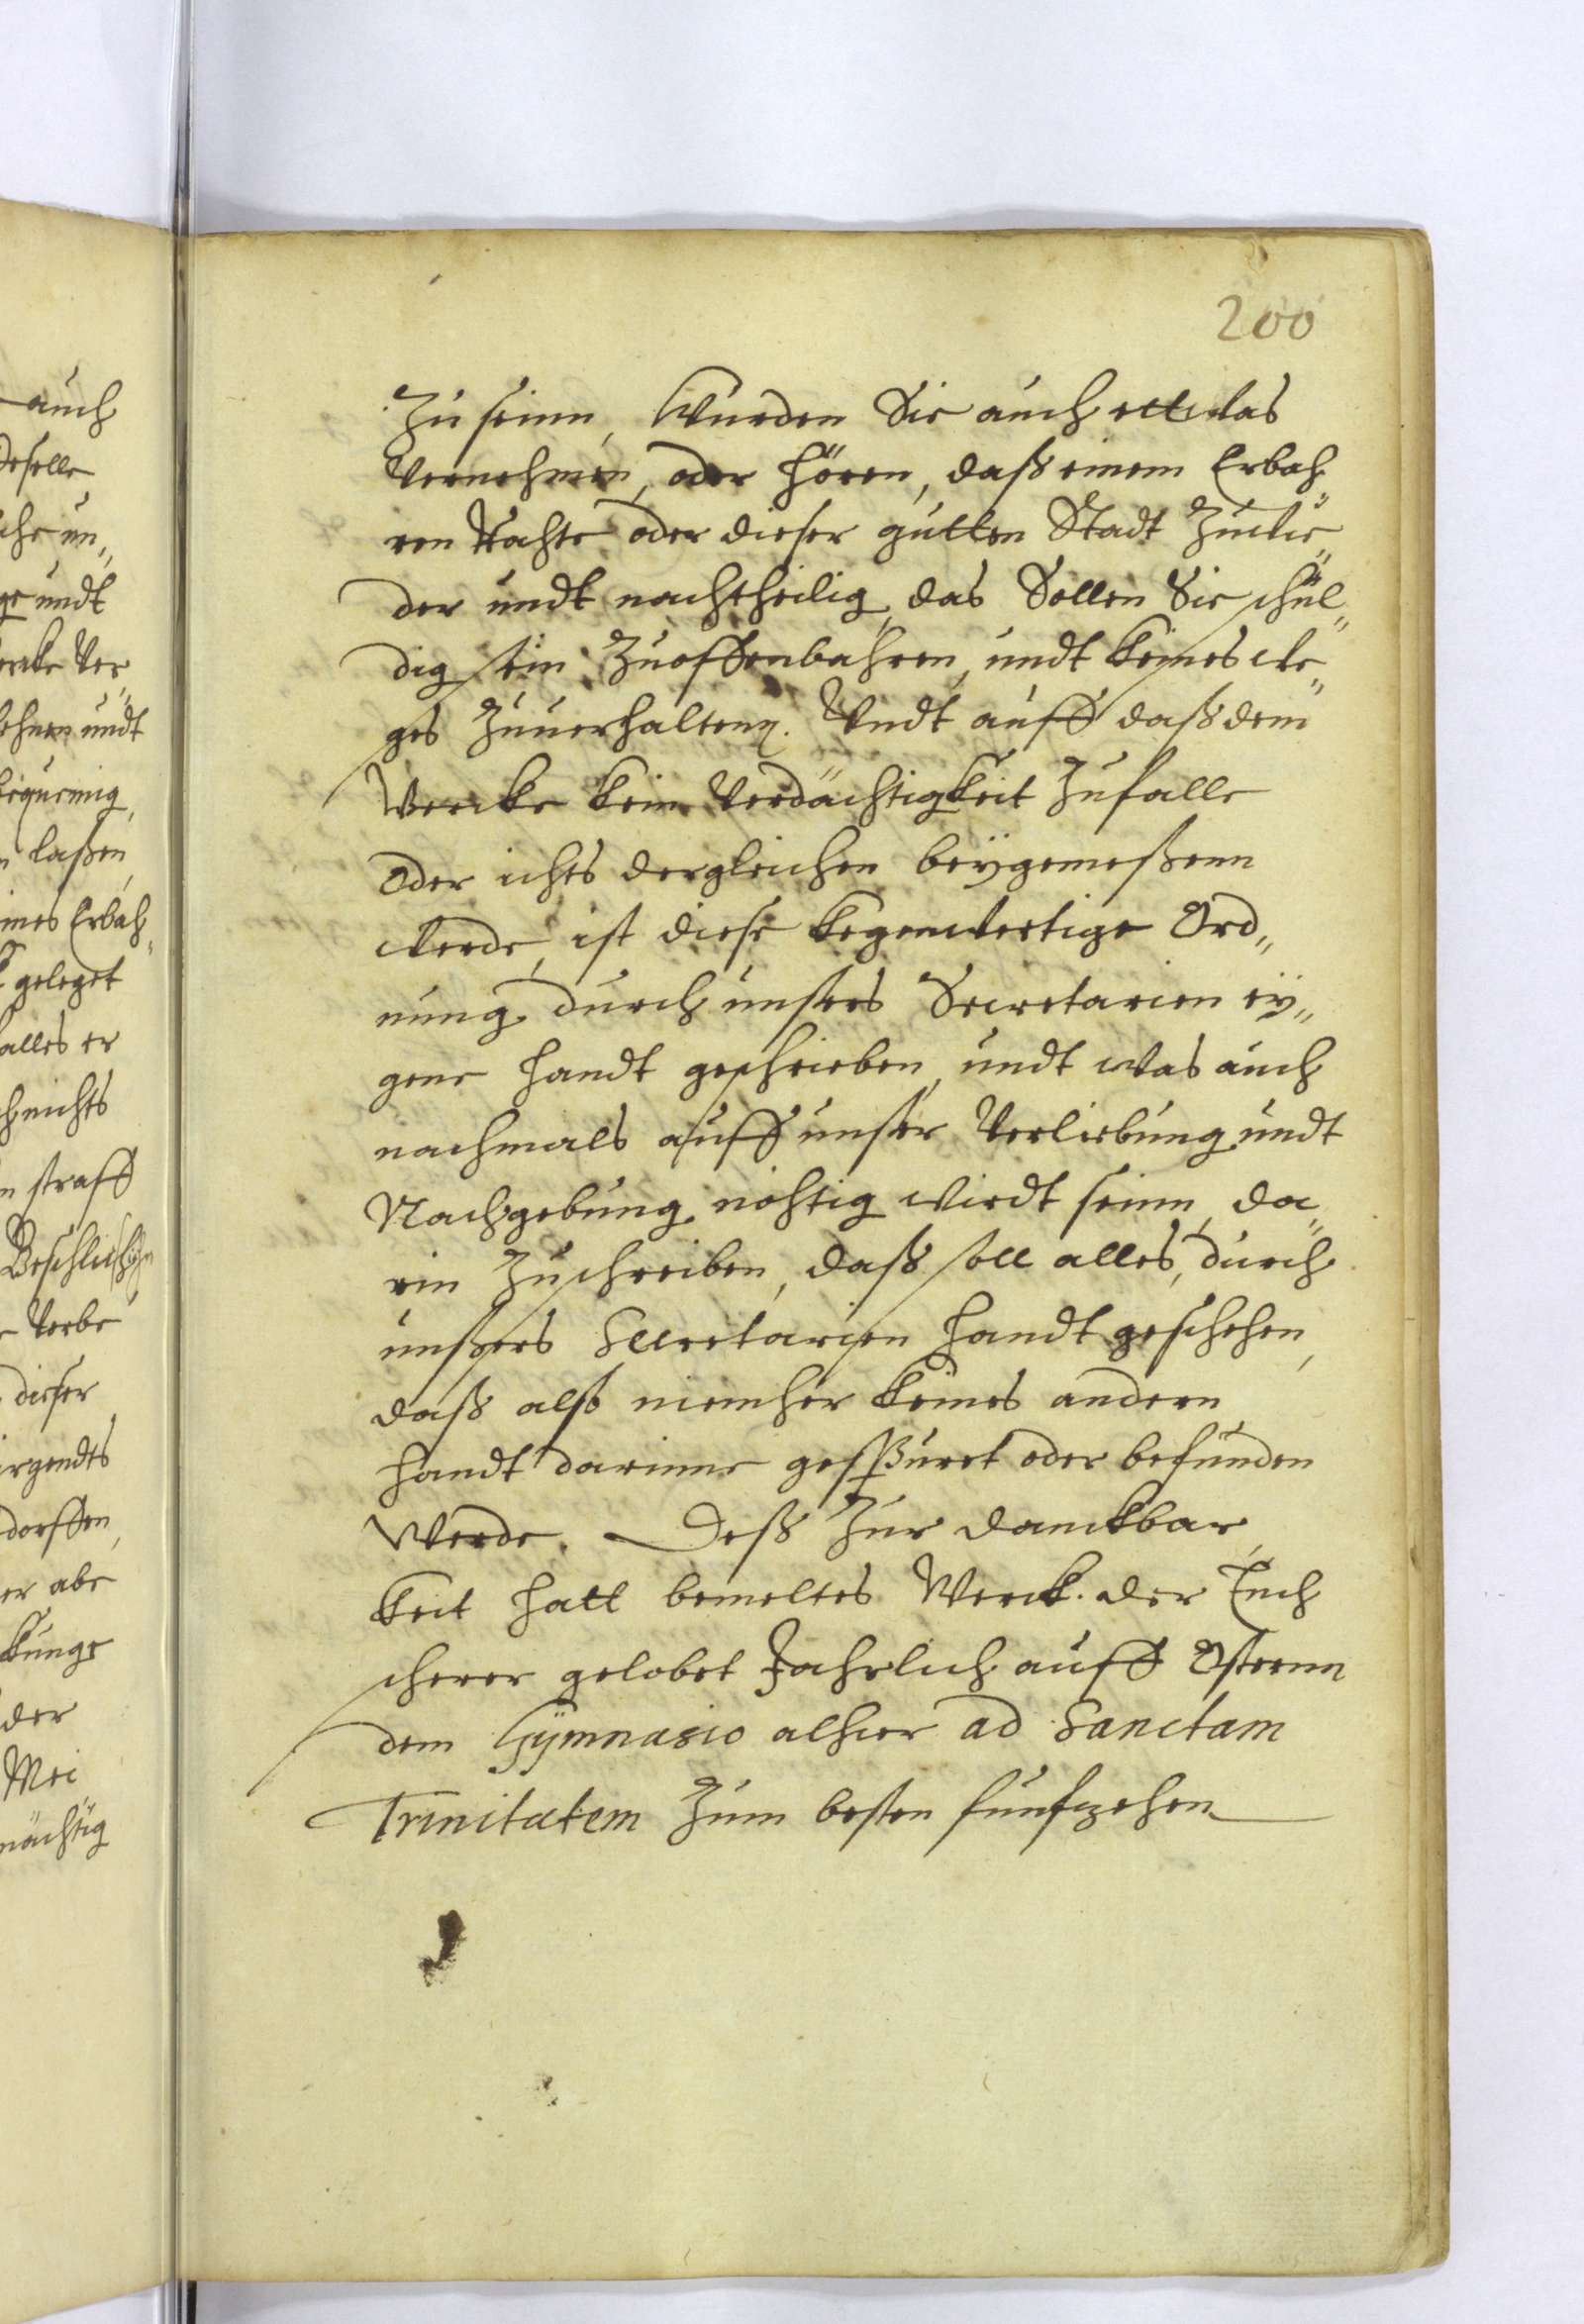 200
Zu seinn, Wurden Sie auch ettwas
Vernehmen, oder hören, daß einem Erbah
ren Rahte oder dieser gutten Stadt Zuwie„
der undt nachtheilig, das Sollen Sie schul„
dig sein Zuoffenbahren, undt keines we„
ges Zuuerhaltenn. Undt auff daß dem
Wercke kein Verdächtigkeit Zufalle
Oder ichts dergleichen beÿgemeßenn
werde, ist diese kegenwertige Ord„
nung durch unsers Secretarien eÿ„
gene handt geschrieben, undt was auch
nachmals auff unser Verliebung undt
Nachgebung nöhtig wirdt seinn, da„
rin Zuschreiben, daß soll alles, durch
unsers Secretarien handt geschehen,
daß alß niemher keines andern
handt darinne gespüret oder befunden
Werde. Deß Zur danckbar
keit hatt bemeltes Werck der Tuch
scherer gelobet Jahrlich auff Osternn
dem Gÿmnasio alhier ad Sanctam
Trinitatem Zum besten funfzehen
auch
undt
undt
laßen
ines Erbah„
geleget
alles er
nichts
straff
dieser
irgendts
dorffen,
er abe
der